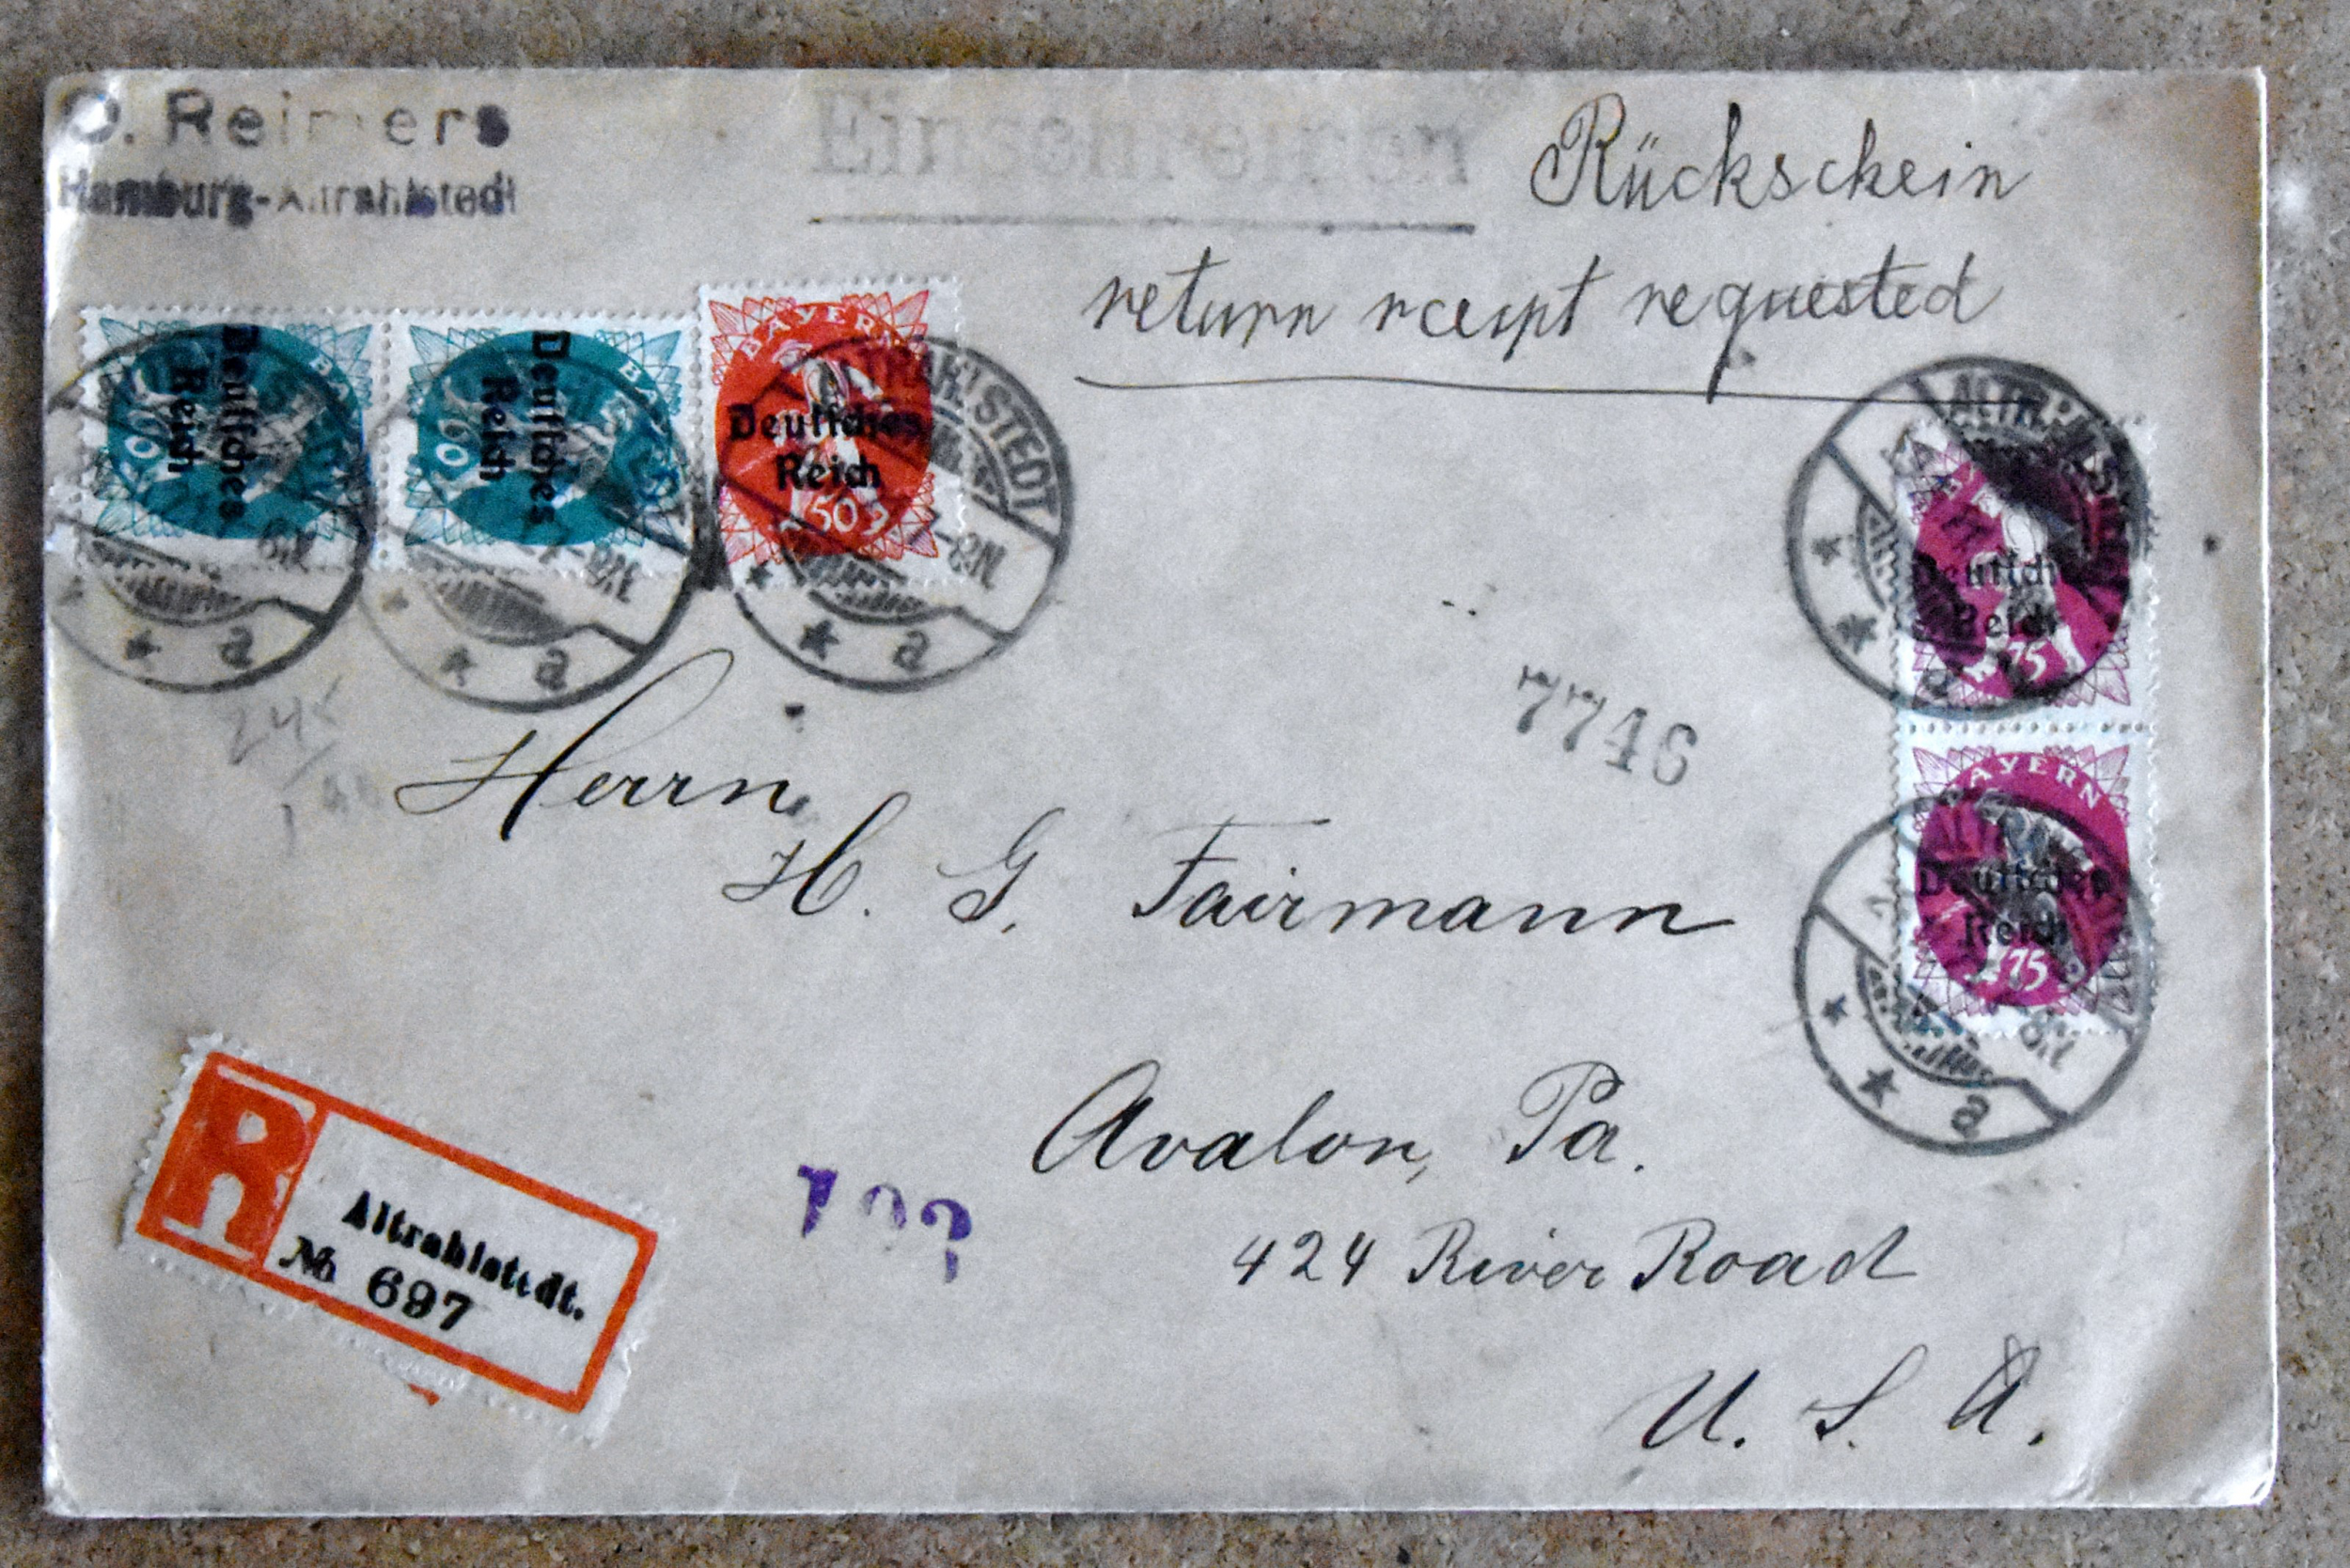 O. Reimers
Hamburg-Altrahlstedt
Einschreiben
Rückschein
return rceipt requested
Deutsches
Reich
Deutsches
Reich
BAYERN
Deutsches
Reich
50
ALTRAHLSTEDT
* a
* a
* a
Deutsches
Reich
75
BAYERN
Deutsches
Reich
75
* * a
7746
Herrn
H. G. Fairmann
Avalon, Pa.
424 River Road
U. S. A.
R
Altrahlstedt.
№ 697